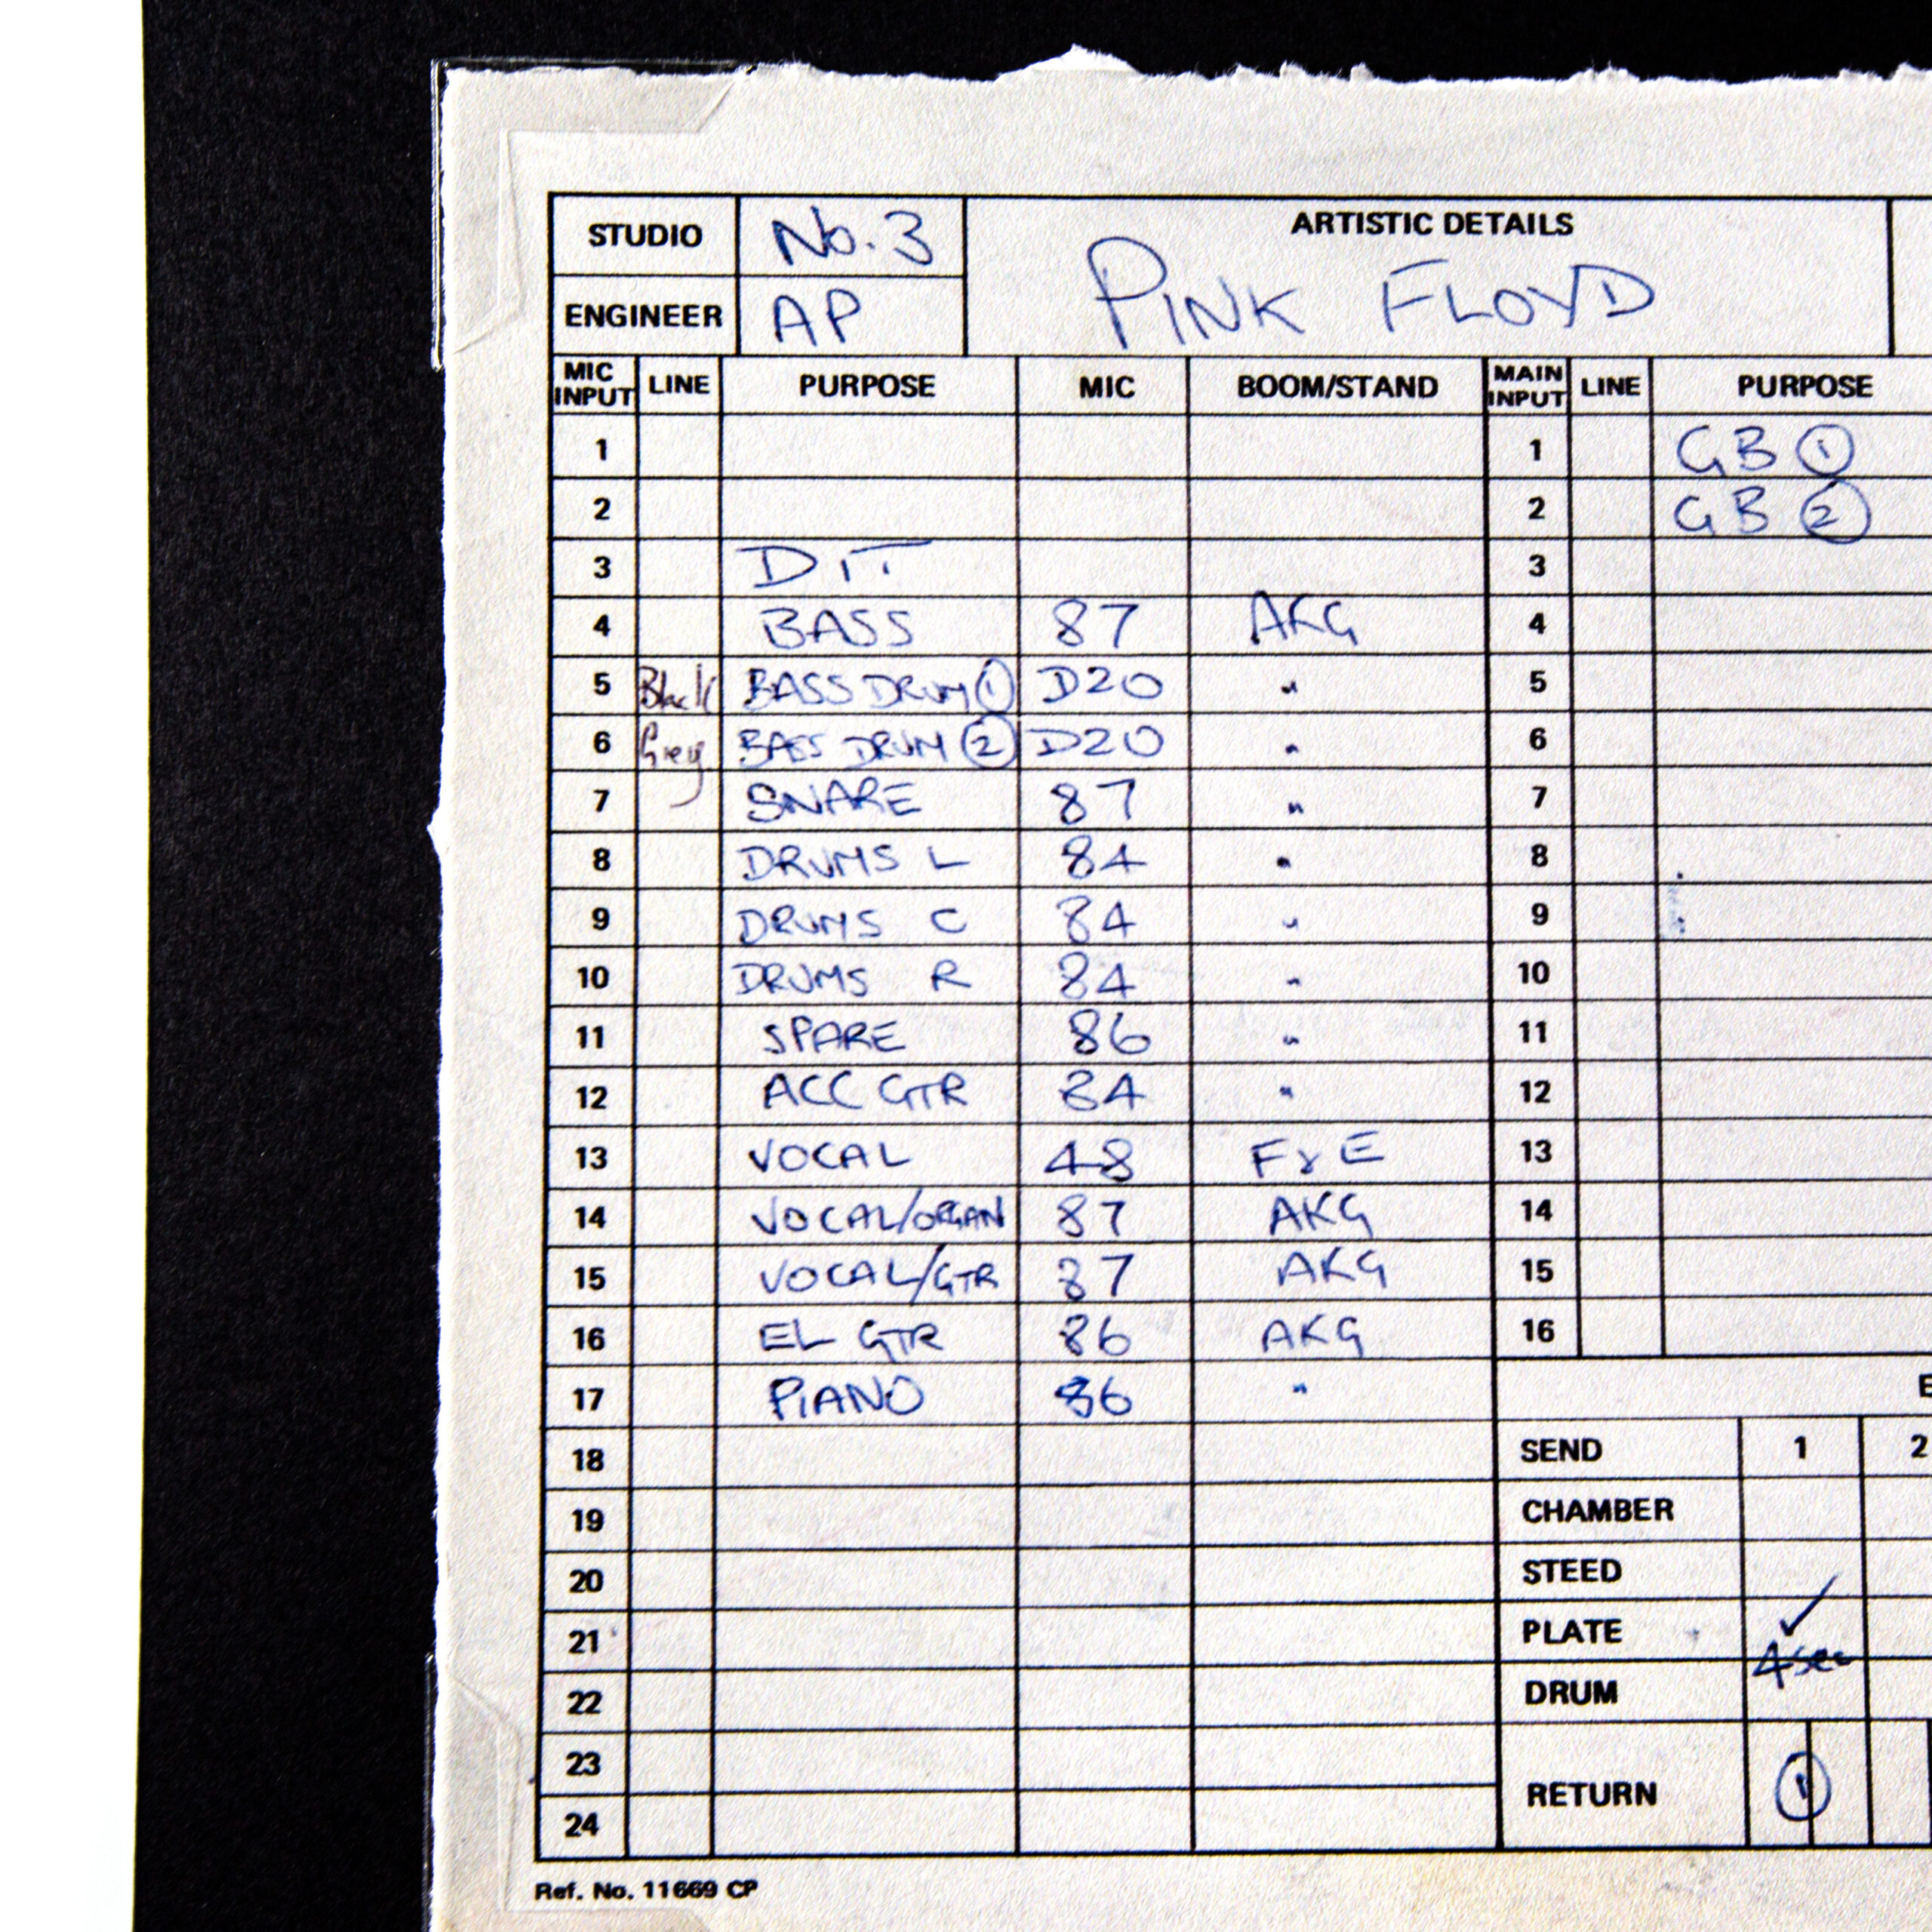 STUDIO No. 3 ARTISTIC DETAILS
ENGINEER AP PINK FLOYD
MIC INPUT LINE PURPOSE MIC BOOM/STAND MAIN INPUT LINE PURPOSE
1 1 GB ①
2 2 GB ②
3 DIT 3
4 BASS 87 AKG 4
5 Black BASS DRUM ① D20 " 5
6 Grey BASS DRUM ② D20 " 6
7 SNARE 87 " 7
8 DRUMS L 84 " 8
9 DRUMS C 84 " 9
10 DRUMS R 84 " 10
11 SPARE 86 " 11
12 ACC GTR 84 " 12
13 VOCAL 48 F&E 13
14 VOCAL/ORGAN 87 AKG 14
15 VOCAL/GTR 87 AKG 15
16 EL GTR 86 AKG 16
17 PIANO 86 "
18 SEND 1 2
19 CHAMBER
20 STEED
21 PLATE ✓ 4 sec
22 DRUM
23
24 RETURN ①
Ref. No. 11669 CP